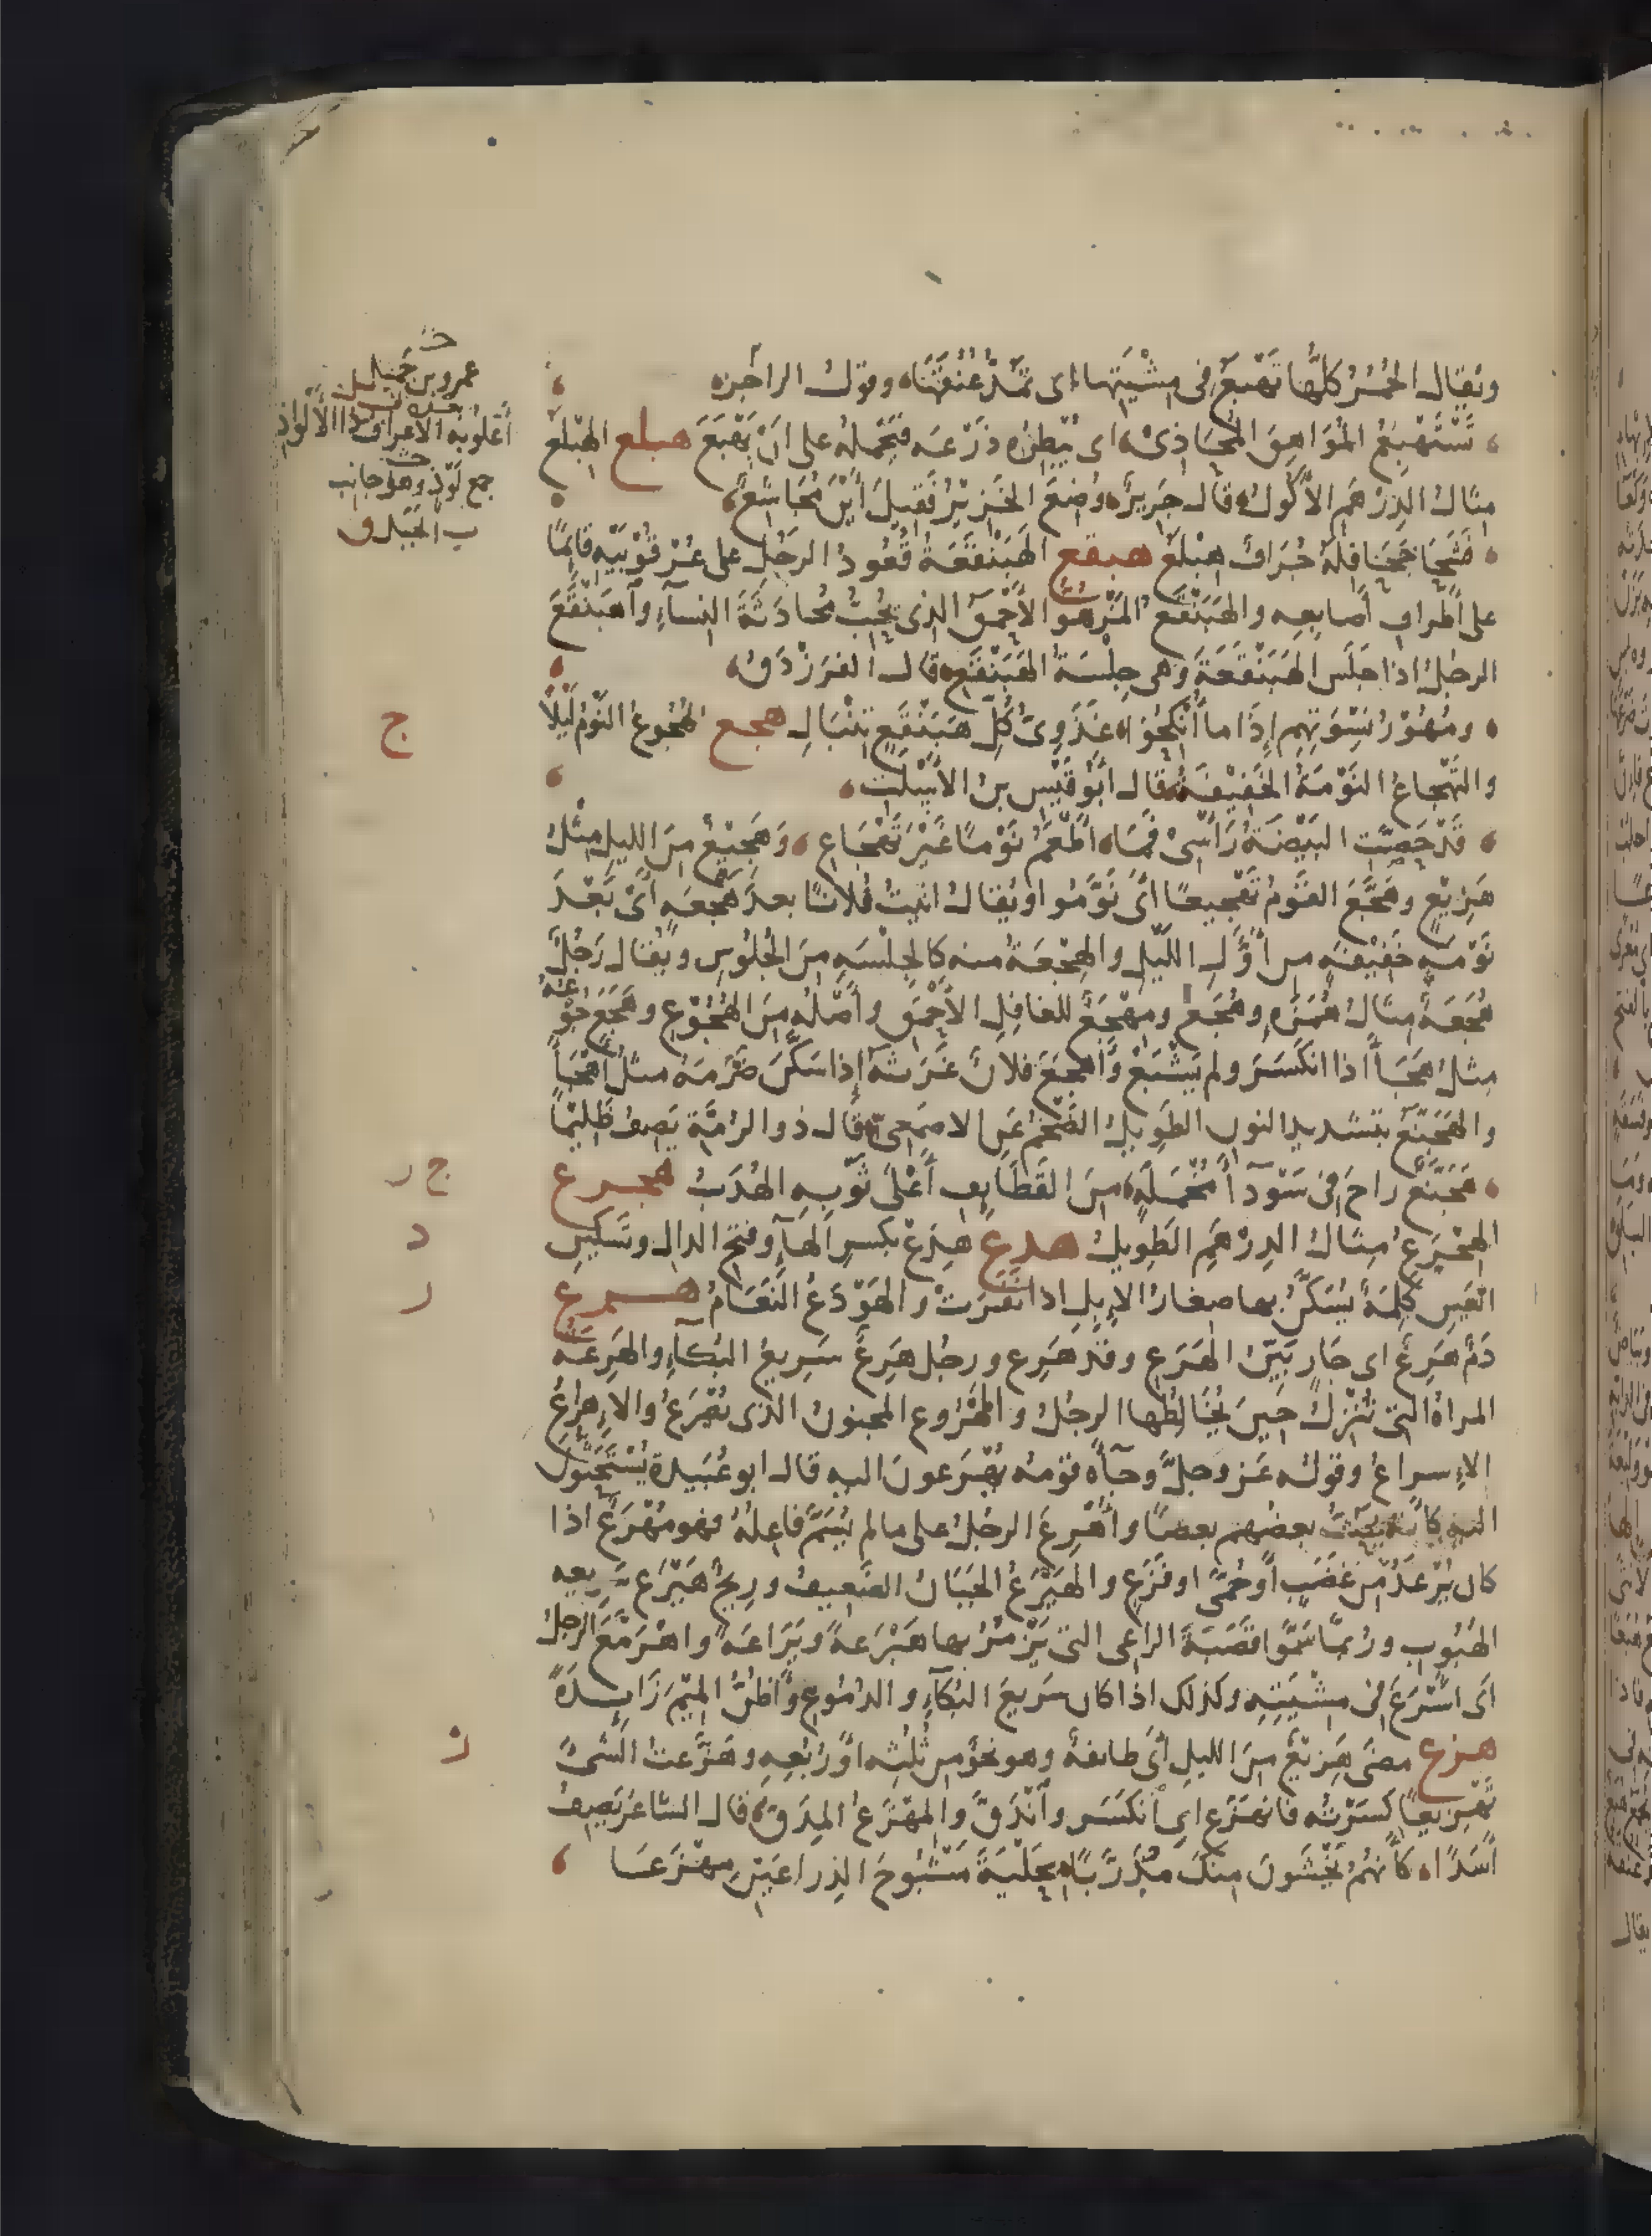 ويقال الحُمُرُ كلُّها تَهْبَعُ فى مِشْيَتِها اى تَمُدُّ عُنُقَهَا وقول الراجز
تَسْتَهْبِعُ المُوَاهِقَ المُحَاذِى اى يُبْطِرُه ذَرْعَه فيَحْمِلُه على انْ يَهْبَعَ هبلع الهِبْلَعُ
مثالُ الدِرْهَمِ الأَكُولُ قال جَرِيرٌ وُضِعَ الخَزِيْرُ فَقِيلَ أَيْنَ مُجَاشِعٌ
فَشَحَا جَحَافِلَهُ جُرَافٌ هِبْلَعُ هبقع الهَبَنْقَعَةُ قُعُودُ الرجُلِ على عُرْقُوبَيْهِ قائِمًا
على أَطْرافِ أَصابِعِه والهَبَنْقَعُ المَزْهُوُّ الأَحْمَقُ الذى يُحِبُّ مُحَادَثَةَ النِساءِ واهْبَنْقَعَ
الرجلُ اذا جَلَسَ الهَبَنْقَعَةَ وهى جِلْسَةُ الهَبَنْقَعِ قال الفَرَزْدَقُ
ومُهُوْرُ نِسْوَتِهِم إِذَا ما أُنْكِحُوْا غَذَوِىُّ كُلِّ هَبَنْقَعٍ تِنْبَالِ هجع الهُجُوعُ النَّوْمُ لَيْلًا
والتَّهْجَاعُ النَّوْمَةُ الخَفِيْفَةُ قال أَبُوْ قَيْسِ بنُ الأَسْلَتِ
قَدْ حَصَّتِ البَيْضَةُ رَأْسِىْ فَمَا أَطْعَمُ نَوْمًا غَيْرَ تَهْجَاعِ وَهَجِيْعٌ مِنَ الليلِ مِثْلُ
هَزِيْعٍ وهَجَّعَ القَوْمُ تَهْجِيعًا أَىْ نَوَّمُوا ويُقالُ اتيتُ فُلانًا بعدَ هَجْعَةٍ أَىْ بَعْدَ
نَوْمَةٍ خَفِيْفَةٍ من أَوَّلِ اللَّيْلِ والهِجْعَةُ منه كالجِلْسَةِ مِنَ الجُلُوسِ ويُقال رَجُلٌ
هُجَعَةٌ مثالُ هُمَزَةٍ وهُجَعٌ ومِهْجَعٌ للغافِلِ الأَحْمَقِ وأَصْلُه مِنَ الهُجُوْعِ وهَجَعَ جُوْعُهُ
مثلُ هَجَأَ اذا انكَسَرَ ولم يَشْبَعْ وأَهْجَعَ فلانٌ غَرَثَهُ إِذا سَكَّنَ ضَرَمَهُ مثلُ أَهْجَأَ
والهَجَنَّعُ بتشديدِ النونِ الطَوِيلُ الضَّخْمُ عَنِ الاصمَعِىّ قال ذو الرُمَّةِ يَصِفُ ظَلِيْمًا
هَجَنَّعٌ راحَ فى سَوْدَآءَ مُخْمَلَةٍ مِنَ القَطَائِفِ أَعْلَى ثَوْبِهِ الهُدَبُ هجرع
الهِجْرَعُ مثالُ الدِرْهَمِ الطَوِيلُ هدع هِدَعْ بكسرِ الهَآءِ وفتحِ الدالِ وتسكينِ
العَيْنِ كَلِمَةٌ يُسَكَّنُ بها صغارُ الإِبِلِ اذا نَفَرَتْ والهَوْدَعُ النَّعَامُ هــرع
دَمٌ هَرِعٌ اى جَارٍ بَيِّنُ الهَرَعِ وقَدْ هَرِعَ ورجُل هَرِعٌ سَرِيعُ البُكَآءِ والهَرِعَةُ
المراةُ التى تُنْزِلُ حِينَ يُخَالِطُها الرجُلُ والمَهْرُوعُ المجنونُ الذى يُصْرَعُ والإِهْرَاعُ
الإِسراعُ وقولُه عَزَّ وجلَّ وجآءَه قَوْمُه يُهْرَعونَ اليه قال ابو عُبَيدة يُسْتَحَثُّوْنَ
اليه كأنّه يَحُثُّ بعضُهم بعضًا وأُهْرِعَ الرجُلُ على ما لم يُسَمَّ فاعِلُه فهو مُهْرَعٌ اذا
كان يُرْعَدُ مِن غَضَبٍ أو حُمَّى او فَزَعٍ والهَيْرَعُ الجَبَانُ الضَعِيفُ ورِيحٌ هَيْرَعٌ سَرِيعه
الهُبُوبِ ورُبَّمَا سَمَّوْا قَصَبَةَ الراعِى التى يَزْمُرُ بها هَيْرَعَةً ويَرَاعَةً واهْرَمَّعَ الرجلُ
اى أَسْرَعَ فى مِشْيَتِهِ وكذلك اذا كان سَرِيعَ البُكَآءِ والدُمُوعِ وأَظُنُّ المِيْمَ زَايِدَةً
هزع مضَى هَزِيْعٌ مِنَ الليلِ أَىْ طائفةٌ وهو نحوٌ مِن ثُلُثِه أو رُبُعِهِ وهَزَّعْتُ الشىْءَ
تَهْزِيعًا كسَّرْتُه فانهَزَعَ اى انكَسَرَ وانْدَقَّ والمِهْزَعُ المِدَقُّ قال الشاعرُ يَصِفُ
أَسَدًا كأَنَّهُمُ يَخْشَونَ مِنْكَ مُذَرَّبًا بِحَلْيَةَ مَشْبُوحَ الذِراعَيْنِ مِهْزَعَا
عمرو بن جَمِيل
جمع لَوْذ وهو جانب
الجَبَل
ج
ج ر
د
ر
ز